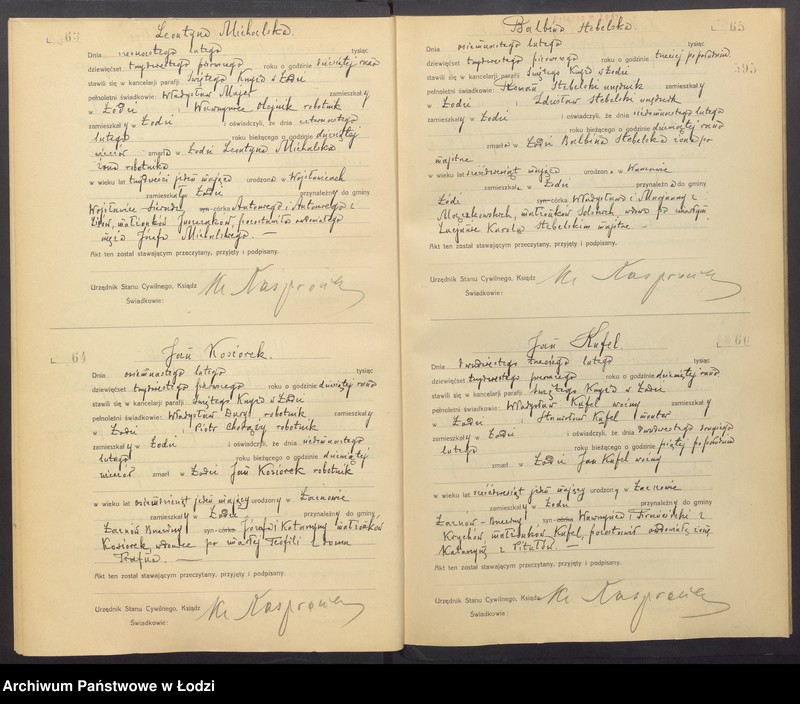 63
Leontyna Michalska.
Dnia siedemnastego lutego tysiąc
dziewięćset trzydziestego pierwszego roku o godzinie dziesiątej rano
stawili się w kancelarji parafji Świętego Krzyża w Łodzi
pełnoletni świadkowie: Władysław Majer zamieszkały
w Łodzi i Wawrzyniec Olejnik robotnik
zamieszkały w Łodzi i oświadczyli, że dnia
lutego roku bieżącego o godzinie dziesiątej
wieczór zmarła w Łodzi Leontyna Michalska
żona robotnika
w wieku lat trzydzieści jeden mająca urodzona w Wojsławicach
zamieszkała Łodzi przynależny do gminy
Wojsławice Sieradz, syn-córka Antoniego i Antoniego z
małżonków pozostawiła owdowiałego
męża Józefa Michalskiego. —
Akt ten został stawającym przeczytany, przyjęty i podpisany.
Urzędnik Stanu Cywilnego, Ksiądz
Świadkowie:
64
Jan Kosiorek.
Dnia osiemnastego lutego tysiąc
dziewięćset trzydziestego pierwszego roku o godzinie dziewiątej rano
stawili się w kancelarji parafji Świętego Krzyża w Łodzi
pełnoletni świadkowie: Władysław Duryś robotnik zamieszkały
w Łodzi i Piotr robotnik
zamieszkały w Łodzi i oświadczyli, że dnia siedemnastego
lutego roku bieżącego o godzinie dziewiątej
wieczór zmarł w Łodzi Jan Kosiorek robotnik
w wieku lat osiemdziesiąt jeden mający urodzony w Żarnowie
zamieszkały w Łodzi przynależny do gminy
Żarnów syn-córka Józefa i Katarzyny małżonków
Kosiorek, wdowiec po zmarłej Teofili z domu
Akt ten został stawającym przeczytany, przyjęty i podpisany.
Urzędnik Stanu Cywilnego, Ksiądz
Świadkowie:
65
Balbina Stebelska
595
Dnia osiemnastego lutego tysiąc
dziewięćset trzydziestego pierwszego roku o godzinie trzeciej popołudniu
stawili się w kancelarji parafji Świętego Krzyża w Łodzi
pełnoletni świadkowie: Stebelski urzędnik zamieszkały
w Łodzi i Zdzisław Stebelski urzędnik
zamieszkały w Łodzi i oświadczyli, że dnia siedemnastego lutego
roku bieżącego o godzinie dziewiątej rano
zmarła w Łodzi Balbina Stebelska żona po
w wieku lat sześćdziesiąt mająca urodzona w
zamieszkała w Łodzi przynależna do gminy
Łódź syn-córka Władysława i Marjanny z
małżonków wdowa po zmarłym
Karolu Stebelskim
Akt ten został stawającym przeczytany, przyjęty i podpisany.
Urzędnik Stanu Cywilnego, Ksiądz
Świadkowie:
66
Jan Kufel.
Dnia dwudziestego trzeciego lutego tysiąc
dziewięćset trzydziestego pierwszego roku o godzinie dziewiątej rano
stawili się w kancelarji parafji Świętego Krzyża w Łodzi
pełnoletni świadkowie: Władysław Kufel woźny zamieszkały
w Łodzi i Stanisław Kufel monter
zamieszkały w Łodzi i oświadczyli, że dnia dwudziestego drugiego
lutego roku bieżącego o godzinie piątej popołudniu
zmarł w Łodzi Jan Kufel woźny
w wieku lat sześćdziesiąt jeden mający urodzony w Żarnowie
zamieszkały w Łodzi przynależny do gminy
Żarnów syn-córka Wawrzyńca i Franciszki z
małżonków Kufel, pozostawił owdowiałą żonę
Katarzynę z
Akt ten został stawającym przeczytany, przyjęty i podpisany.
Urzędnik Stanu Cywilnego, Ksiądz
Świadkowie:
Archiwum Państwowe w Łodzi